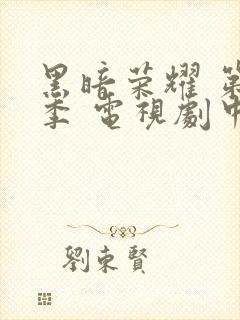 黑暗荣耀 第
季 電視劇中
劉東賢